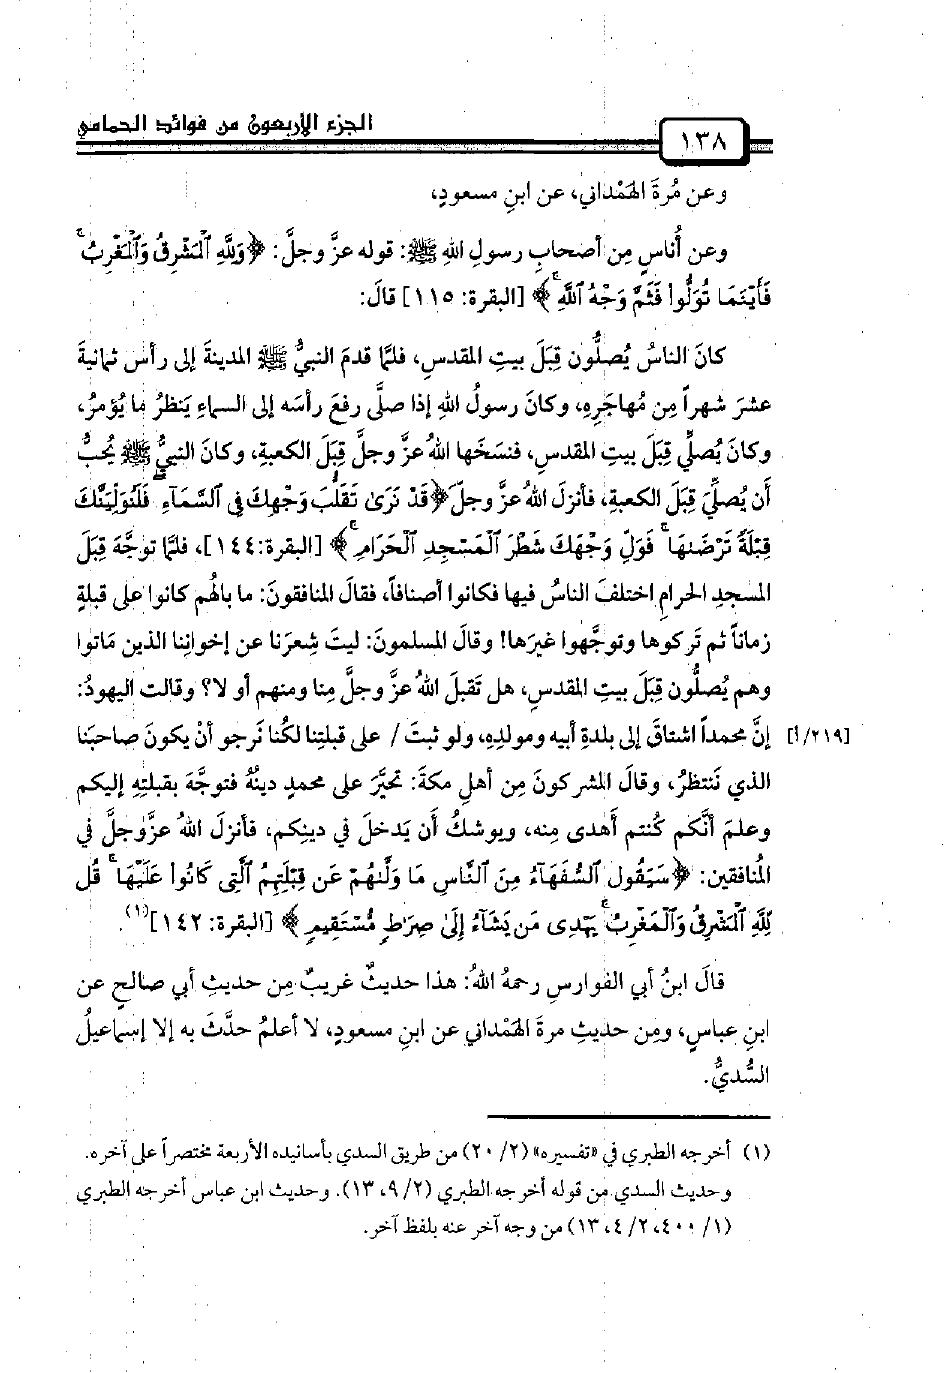 الجزء الأربعون من فوائد الحمامي
١٣٨
وعن مُرةَ الهَمْداني، عن ابنِ مسعودٍ،
وعن أُناسٍ مِن أصحابِ رسولِ اللهِ ﷺ: قوله عزَّ وجلَّ: ﴿وَلِلَّهِ ٱلْمَشْرِقُ وَٱلْمَغْرِبُ ۚ
فَأَيْنَمَا تُوَلُّوا۟ فَثَمَّ وَجْهُ ٱللَّهِ ۚ﴾ [البقرة: ١١٥] قالَ:
كانَ الناسُ يُصلُّون قِبَلَ بيتِ المقدسِ، فلمَّا قدمَ النبيُّ ﷺ المدينةَ إلى رأس ثمانيةَ
عشرَ شهراً مِن مُهاجَرِهِ، وكانَ رسولُ اللهِ إذا صلَّى رفعَ رأسَه إلى السماءِ يَنظرُ ما يُؤمرُ،
وكانَ يُصلِّي قِبَلَ بيتِ المقدسِ، فنسَخَها اللهُ عزَّ وجلَّ قِبَلَ الكعبةِ، وكانَ النبيُّ ﷺ يُحبُّ
أَن يُصلِّيَ قِبَلَ الكعبةِ، فأنزلَ اللهُ عزَّ وجلّ ﴿قَدْ نَرَىٰ تَقَلُّبَ وَجْهِكَ فِى ٱلسَّمَآءِ ۖ فَلَنُوَلِّيَنَّكَ
قِبْلَةً تَرْضَىٰهَا ۚ فَوَلِّ وَجْهَكَ شَطْرَ ٱلْمَسْجِدِ ٱلْحَرَامِ ۚ﴾ [البقرة:١٤٤]، فلمَّا توجَّهَ قِبَلَ
المسجدِ الحرامِ اختلفَ الناسُ فيها فكانوا أصنافاً، فقالَ المنافقونَ: ما بالُهم كانوا على قبلةٍ
زماناً ثم تَركوها وتوجَّهوا غيرَها! وقالَ المسلمونَ: ليتَ شِعرَنا عن إخوانِنا الذين مَاتوا
وهم يُصلُّون قِبَلَ بيتِ المقدسِ، هل تَقبلَ اللهُ عزَّ وجلَّ مِنا ومنهم أو لا؟ وقالت اليهودُ:
إنَّ محمداً اشتاقَ إلى بلدةِ أبيه ومولدِهِ، ولو ثبتَ / على قبلتِنا لكُنا نَرجو أنْ يكونَ صاحبَنا [٢١٩/أ]
الذي نَنتظرُ، وقالَ المشركونَ مِن أهلِ مكةَ: تَحيَّرَ على محمدٍ دينُهُ فتوجَّهَ بقبلتِهِ إليكم
وعلمَ أنَّكم كُنتم أَهدى مِنه، ويوشكُ أَن يَدخلَ في دينِكم، فأنزلَ اللهُ عزَّوجلَّ في
المُنافقين: ﴿سَيَقُولُ ٱلسُّفَهَآءُ مِنَ ٱلنَّاسِ مَا وَلَّىٰهُمْ عَن قِبْلَتِهِمُ ٱلَّتِى كَانُوا۟ عَلَيْهَا ۚ قُل
لِّلَّهِ ٱلْمَشْرِقُ وَٱلْمَغْرِبُ ۚ يَهْدِى مَن يَشَآءُ إِلَىٰ صِرَٰطٍ مُّسْتَقِيمٍ﴾ [البقرة: ١٤٢](١).
قالَ ابنُ أبي الفوارسِ رحمهُ اللهُ: هذا حديثٌ غريبٌ مِن حديثِ أبي صالحٍ عن
ابنِ عباسٍ، ومِن حديثِ مرةَ الهَمْداني عن ابنِ مسعودٍ، لا أعلمُ حدَّثَ به إلا إسماعيلُ
السُّديُّ.
(١) أخرجه الطبري في «تفسيره» (٢/ ٢٠) من طريق السدي بأسانيده الأربعة مختصراً على آخره.
وحديث السدي من قوله أخرجه الطبري (٢/ ٩، ١٣). وحديث ابن عباس أخرجه الطبري
(١/ ٤٠٠، ٢/ ٤، ١٣) من وجه آخر عنه بلفظ آخر.